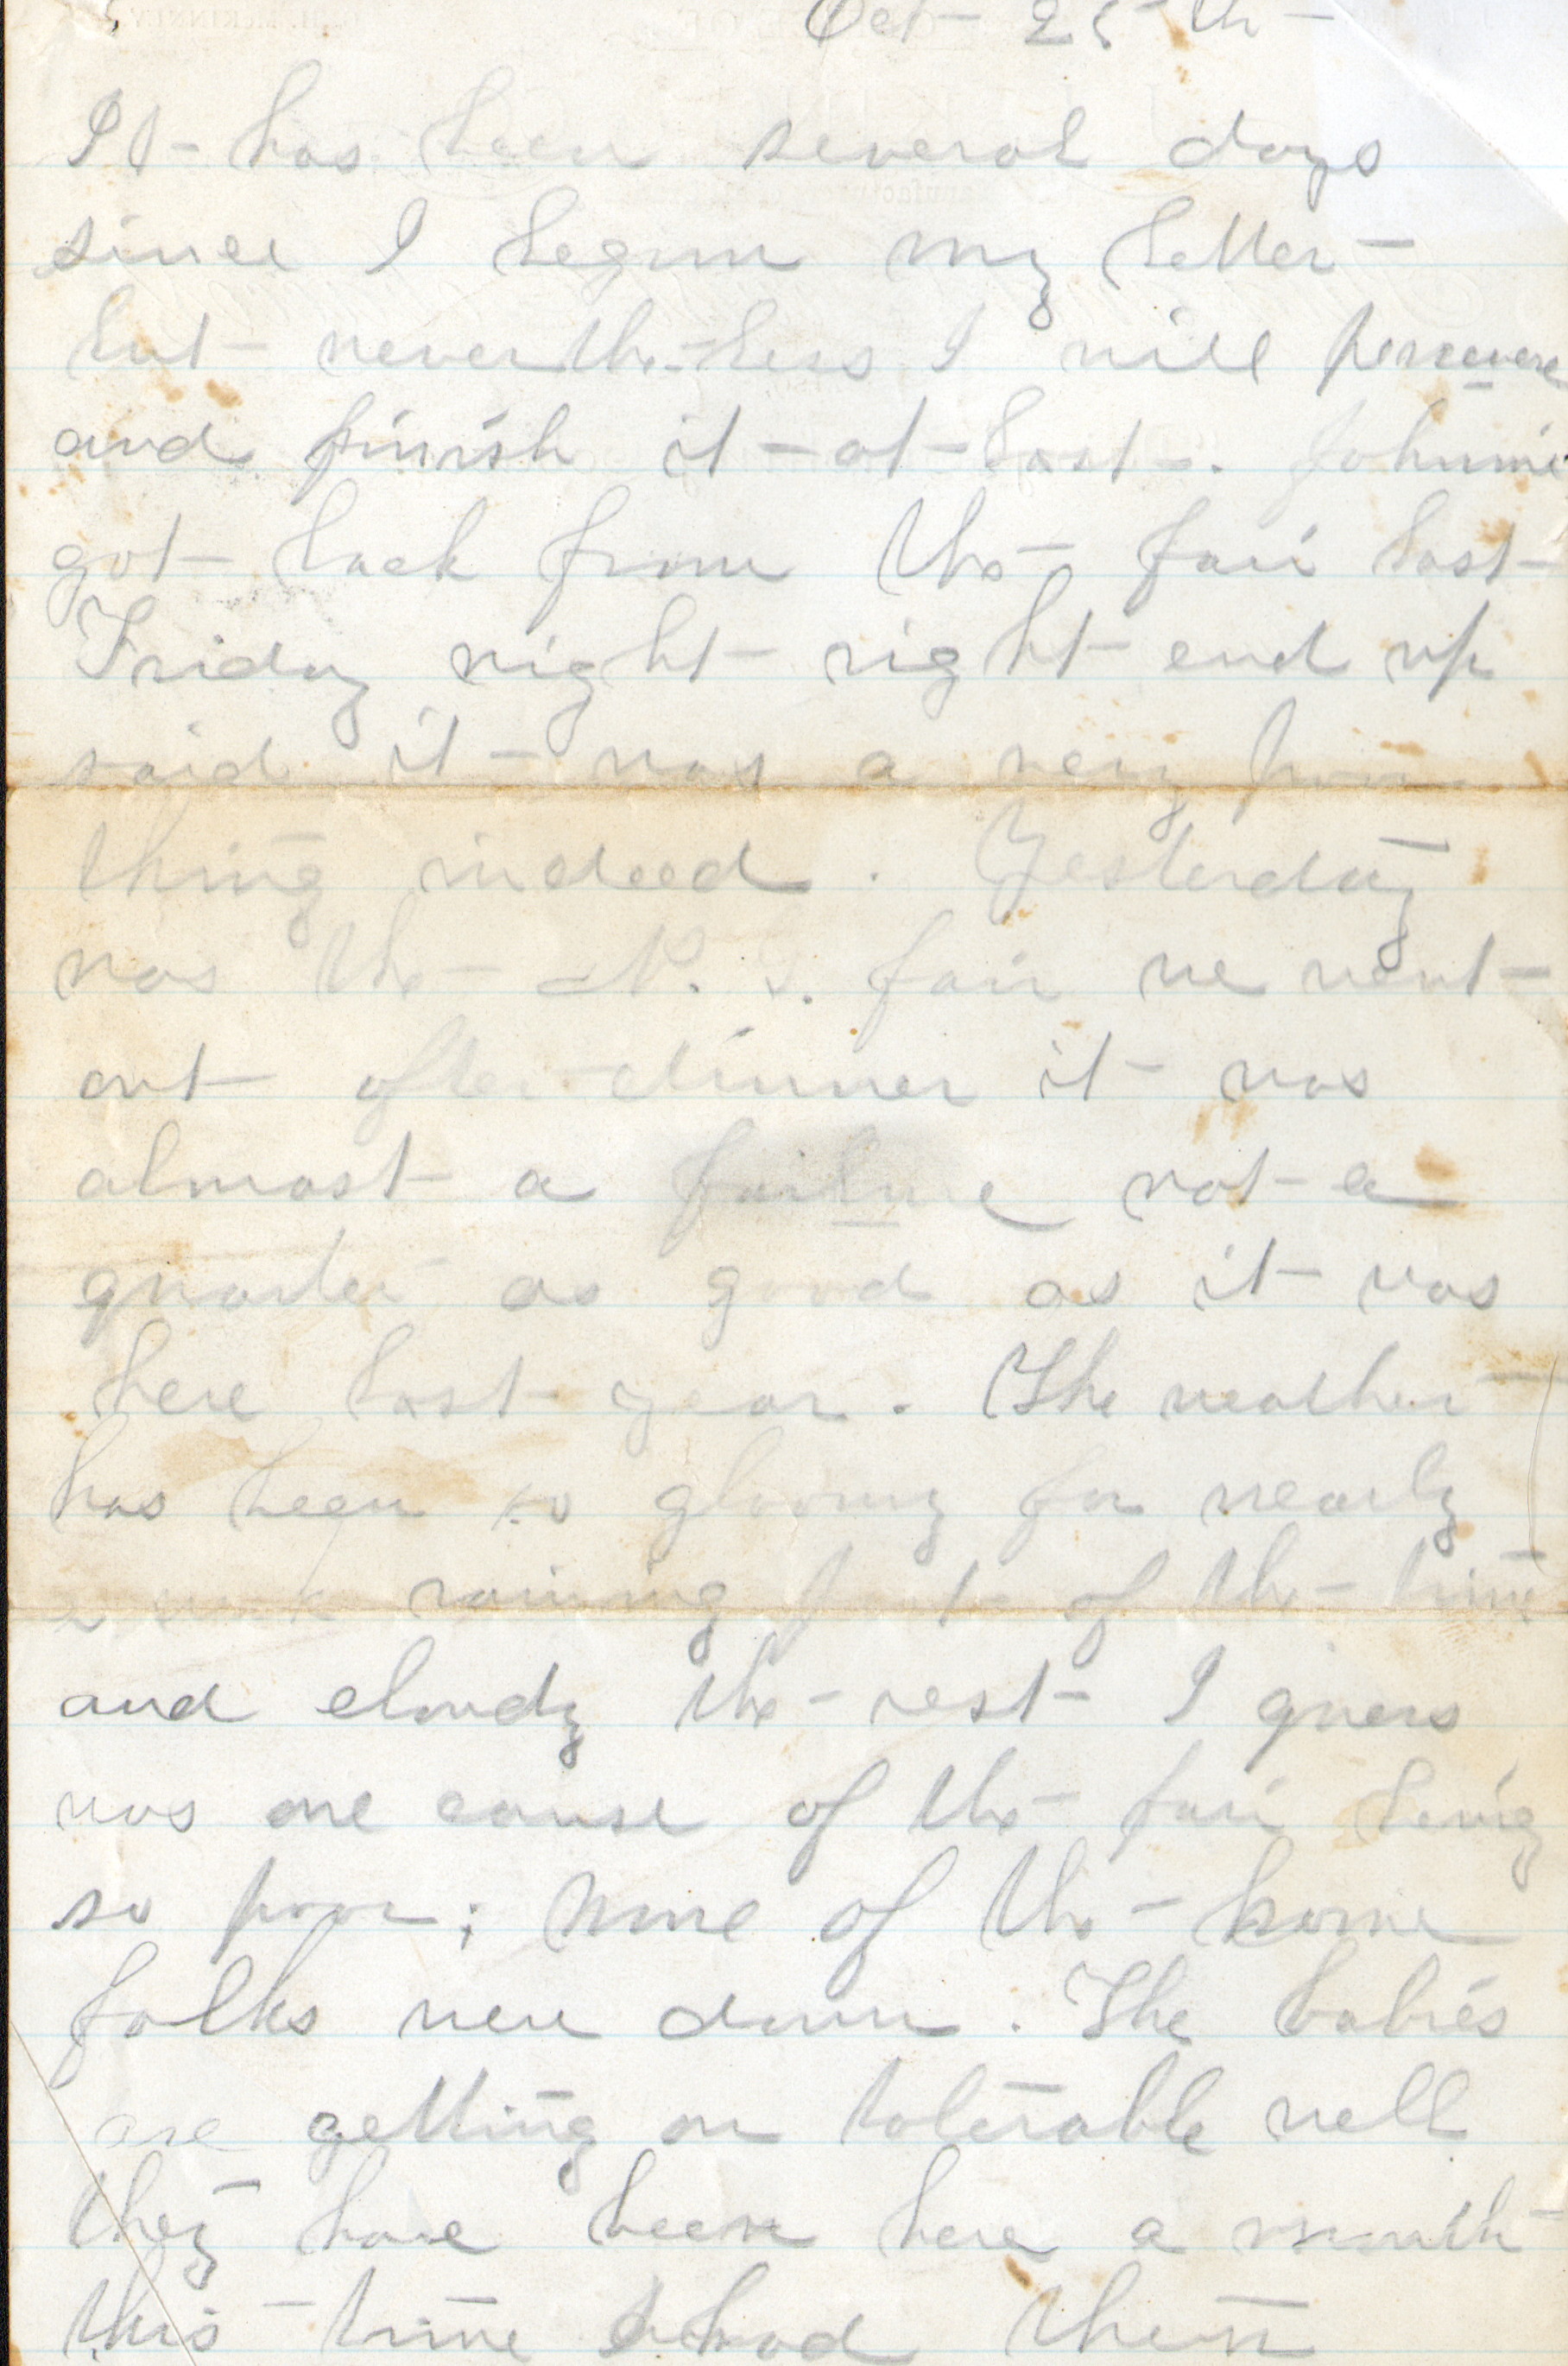 Oct 25th
It has been several days
since I begun my letter
but never the-less I will persevere
and finish it at last. Johnnie
got back from the fair last
Friday night right end up
said it was a very poor
thing indeed. Yesterday
was the N. S. fair we went
out after dinner it was
almost a failure not a
quarter as good as it was
here last year. The weather
has been so gloomy for nearly
a week raining part of the time
and cloudy the rest I guess
was one cause of the fair being
so poor; None of the home
folks were down. The babies
are getting on tolerable well
they have been here a month
this time I had them